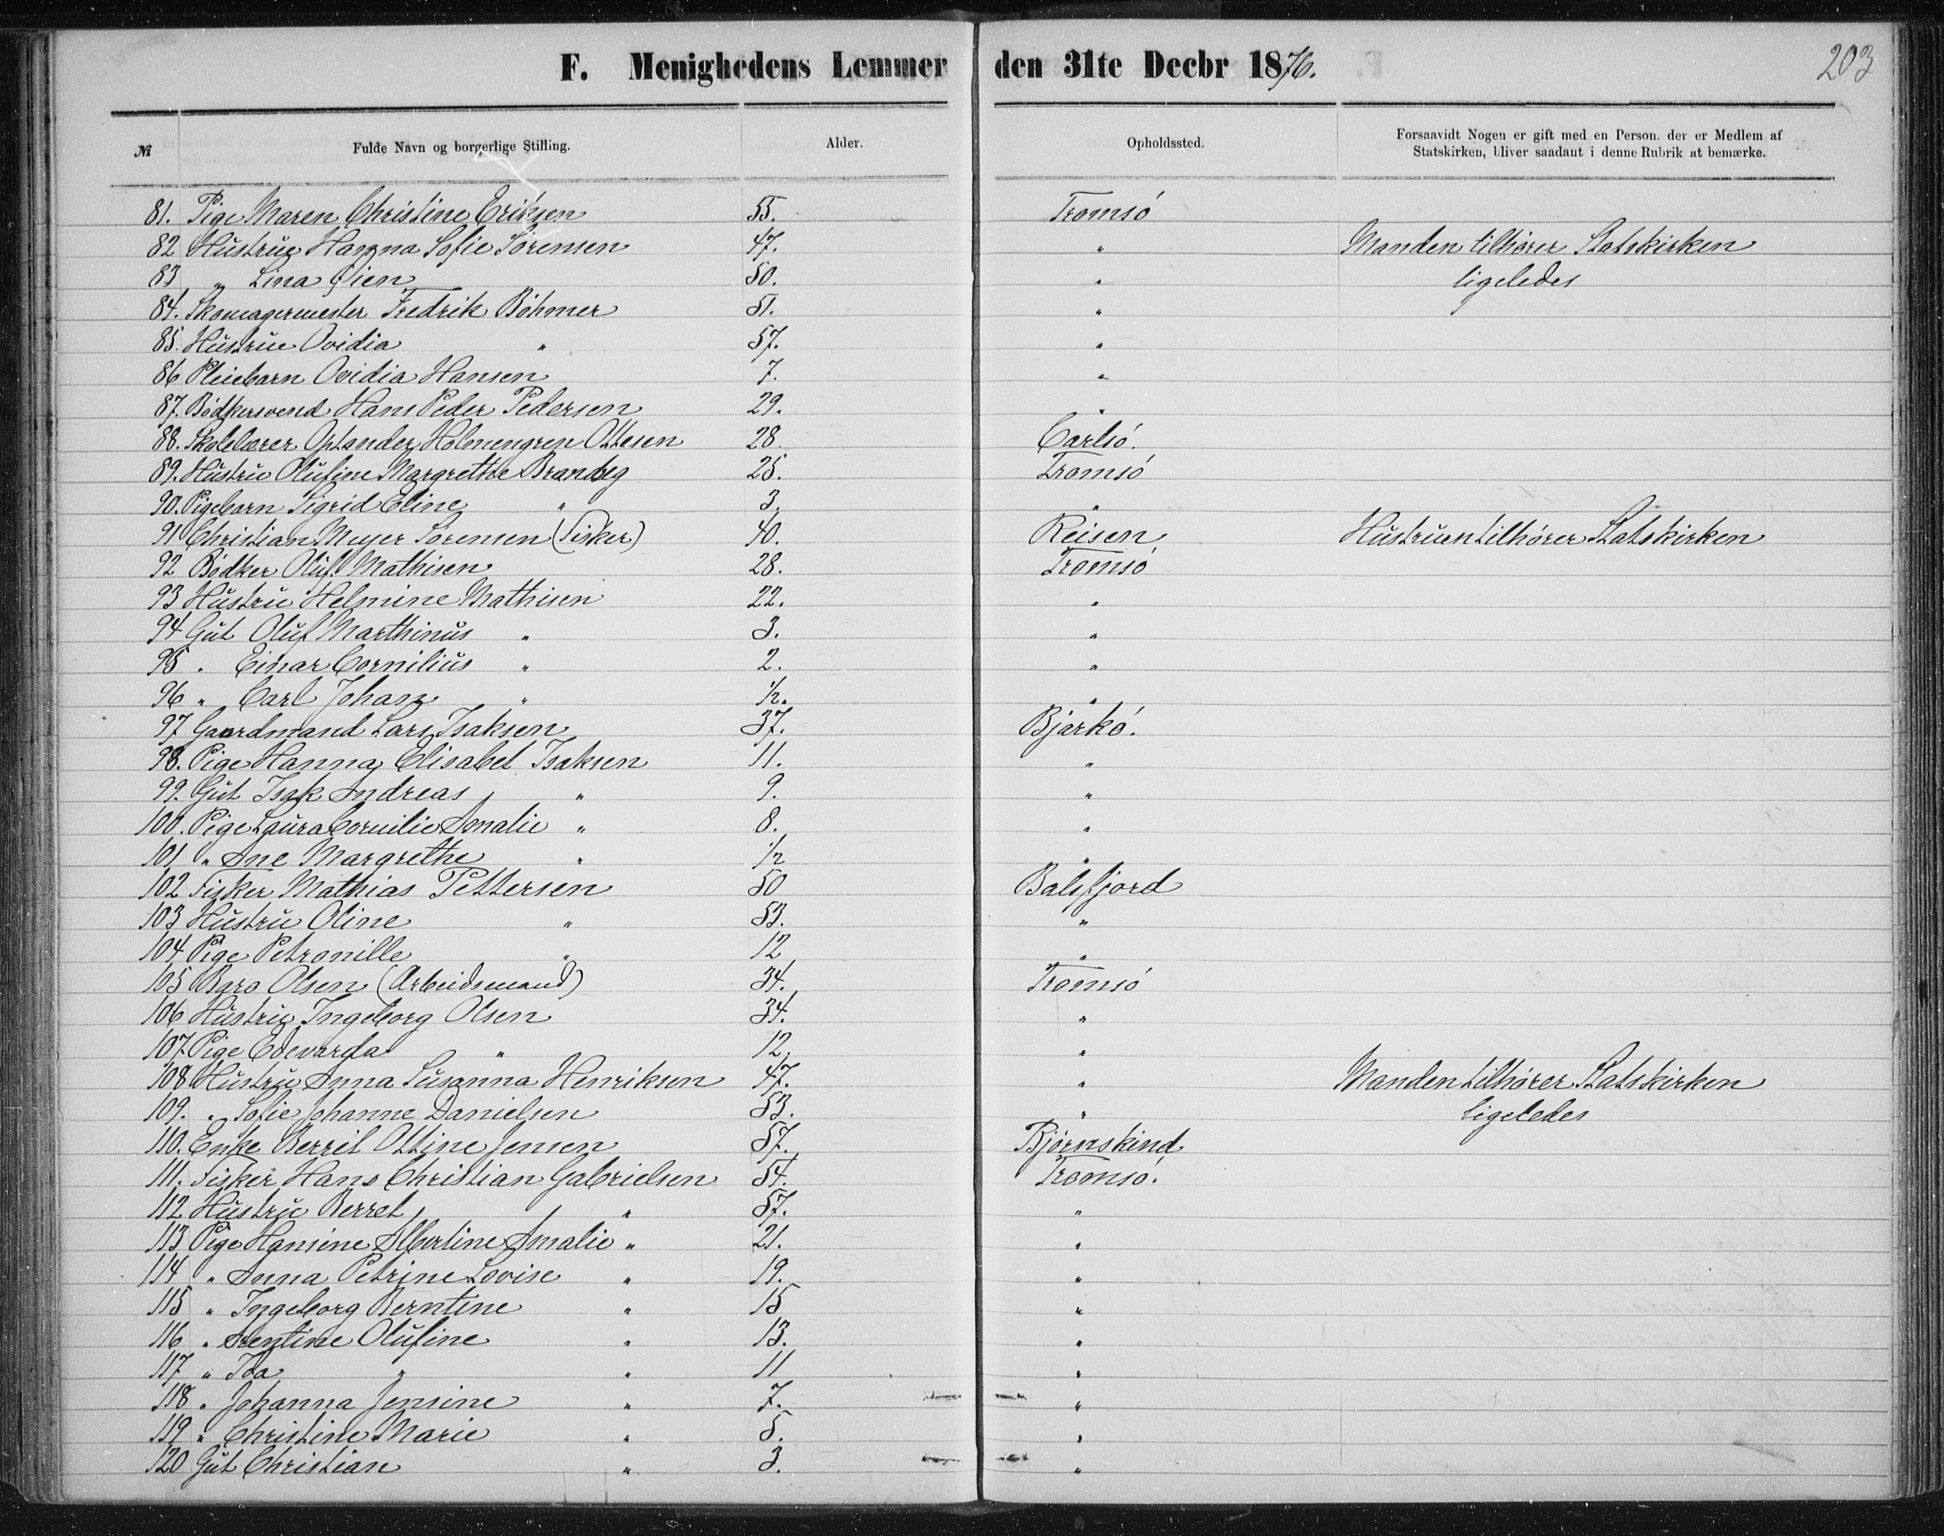 F. Menighedens Lemmer den 31te Decbr 1876. 203
№ Fulde Navn og borgerlige Stilling. Alder. Opholdssted. Forsaavidt Nogen er gift med en Person, der er Medlem af Statskirken, bliver saadant i denne Rubrik at bemærke.
81. Pige Maren Christine Eriksen 55. Tromsö
82 Hustrue Hanna Sofie Sørensen 47. " Manden tilhører Statskirken
83 " Lina Oien 50. " ligeledes
84. Skomagermester Fredrik Böhmer 51. "
85. Hustrue Ovidia " 57. "
86 Pleiebarn Ovidia Hansen 7. "
87. Bödkersvend Hans Peder Pedersen 29. "
88. Skolelærer Holmengren Ottesen 28 Carlsö.
89. Hustru Olufine Margrethe 25. Tromsö
90. Pigebarn Sigrid Eline " 3. "
91 Christian Meyer Sörensen (Fisker) 40. Reisen Hustruen tilhører Statskirken
92 Bödker Oluf Mathisen 28. Tromsö
93 Hustru Helmine Mathisen 22. "
94 Gut Oluf Marthinus " 3. "
95 " Einar Cornilius " 2. "
96 " Carl Johan " ½. "
97 Gaardmand Lars Isaksen 37. Bjarkö.
98. Pige Hanna Elisabet Isaksen 11. "
99. Gut Isak Andreas " 9. "
100. Pige Laura Cornilie Amalie " 8. "
101 " Ane Margrethe " ½ "
102 Fisker Mathias Pettersen 50 Balsfjord
103 Hustru Oline " 53. "
104 Pige Petronille " 12 "
105 Olsen (Arbeidsmand) 34. Tromsö
106 Hustru Ingeborg Olsen 34. "
107 Pige Edevarda " 12. "
108 Hustru Anna Susanna Henriksen 47. " Manden tilhører Statskirken
109. " Sofie Johanne Danielsen 53. " ligeledes
110. Enke Berrit Ottine Jensen 57. Bjørnskind
111. Fisker Hans Christian Gabrielsen 54. Tromsö.
112 Hustru Berret " 57. "
113 Pige Hansine Albertine Amalie " 21. "
114 " Anna Petrine Lovise " 19. "
115 " Ingeborg Berntine " 15 "
116 " Arentine Olufine " 13. "
117 " Ida " " 11 "
118 " Johanna Jensine " 7. "
119 " Christine Marie " 5. "
120 Gut Christian " 3. "